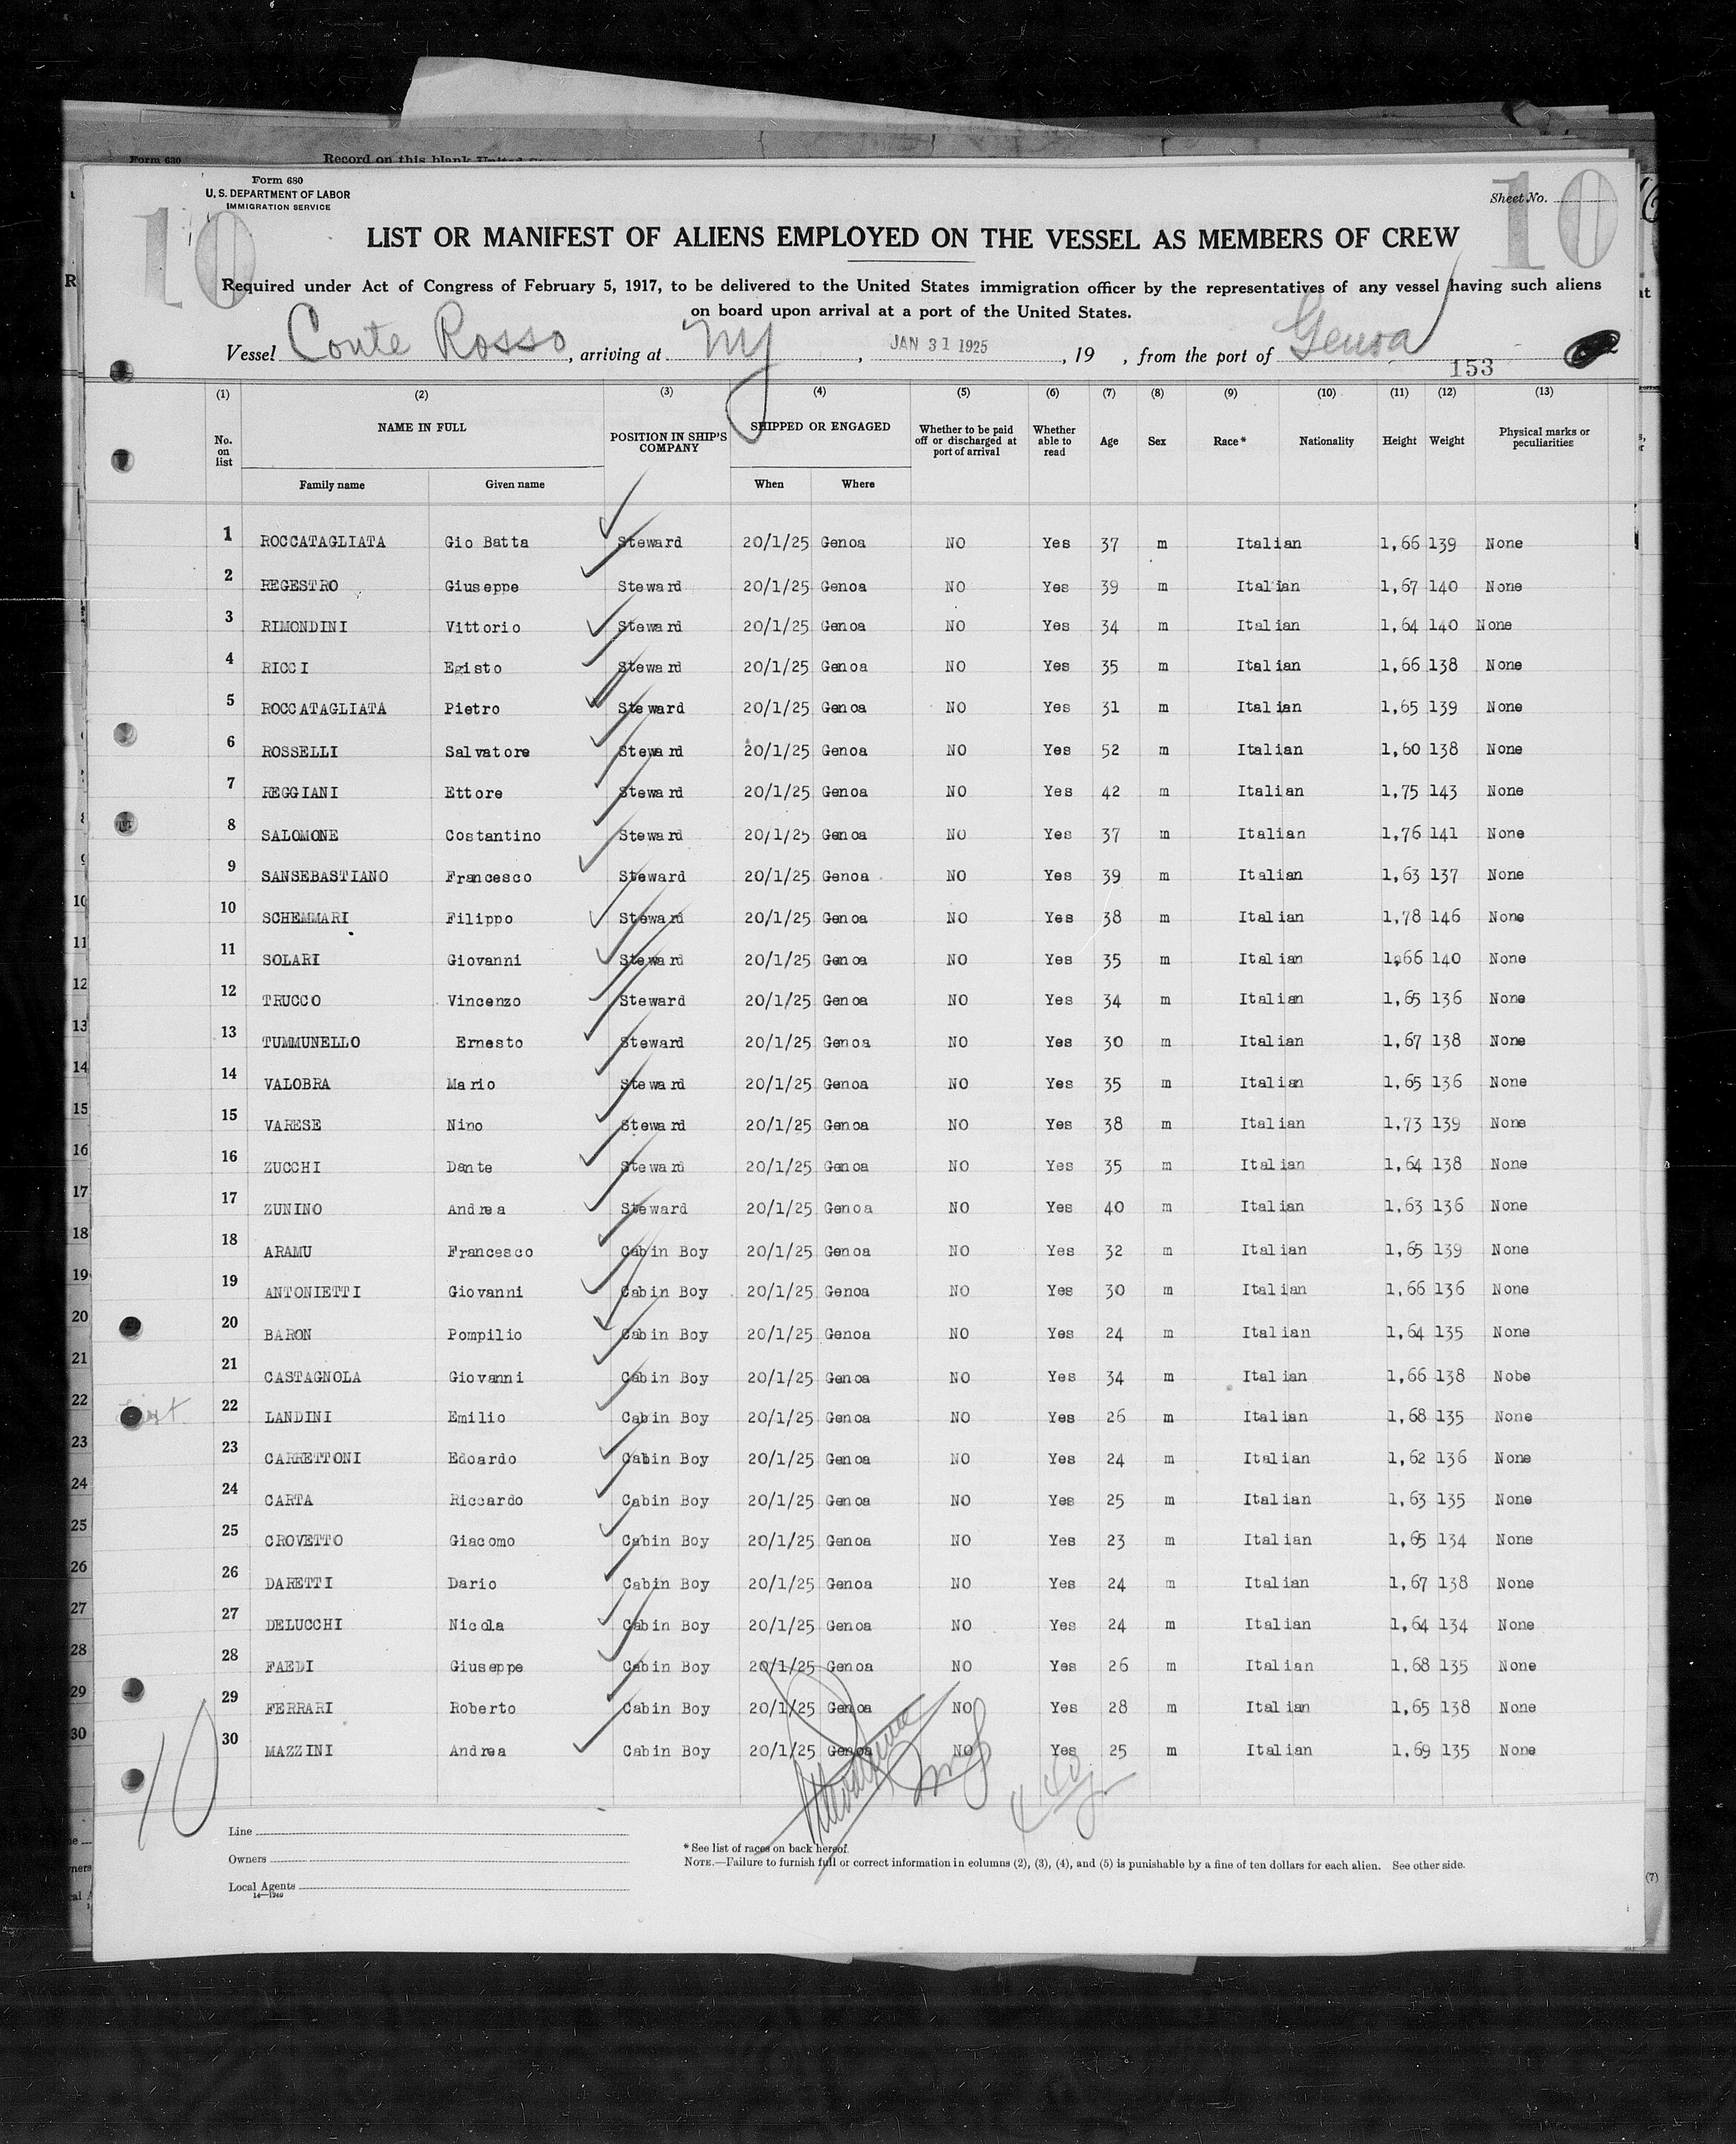 Form 630 Record on this blank United
Form 680
U. S. DEPARTMENT OF LABOR
IMMIGRATION SERVICE
Sheet No.
10 10
LIST OR MANIFEST OF ALIENS EMPLOYED ON THE VESSEL AS MEMBERS OF CREW
Required under Act of Congress of February 5, 1917, to be delivered to the United States immigration officer by the representatives of any vessel having such aliens
on board upon arrival at a port of the United States.
Vessel Conte Rosso, arriving at NY, JAN 31 1925, 19 , from the port of Genoa
153
(1) (2) (3) (4) (5) (6) (7) (8) (9) (10) (11) (12) (13)
No. on list NAME IN FULL POSITION IN SHIP'S COMPANY SHIPPED OR ENGAGED Whether to be paid off or discharged at port of arrival Whether able to read Age Sex Race* Nationality Height Weight Physical marks or peculiarities
Family name Given name When Where
1 ROCCATAGLIATA Gio Batta Steward 20/1/25 Genoa NO Yes 37 m Italian 1,66 139 None
2 REGESTRO Giuseppe Steward 20/1/25 Genoa NO Yes 39 m Italian 1,67 140 None
3 RIMONDINI Vittorio Steward 20/1/25 Genoa NO Yes 34 m Italian 1,64 140 None
4 RICCI Egisto Steward 20/1/25 Genoa NO Yes 35 m Italian 1,66 138 None
5 ROCCATAGLIATA Pietro Steward 20/1/25 Genoa NO Yes 31 m Italian 1,65 139 None
6 ROSSELLI Salvatore Steward 20/1/25 Genoa NO Yes 52 m Italian 1,60 138 None
7 REGGIANI Ettore Steward 20/1/25 Genoa NO Yes 42 m Italian 1,75 143 None
8 SALOMONE Costantino Steward 20/1/25 Genoa NO Yes 37 m Italian 1,76 141 None
9 SANSEBASTIANO Francesco Steward 20/1/25 Genoa NO Yes 39 m Italian 1,63 137 None
10 SCHEMMARI Filippo Steward 20/1/25 Genoa NO Yes 38 m Italian 1,78 146 None
11 SOLARI Giovanni Steward 20/1/25 Genoa NO Yes 35 m Italian 1,66 140 None
12 TRUCCO Vincenzo Steward 20/1/25 Genoa NO Yes 34 m Italian 1,65 136 None
13 TUMMUNELLO Ernesto Steward 20/1/25 Genoa NO Yes 30 m Italian 1,67 138 None
14 VALOBRA Mario Steward 20/1/25 Genoa NO Yes 35 m Italian 1,65 136 None
15 VARESE Nino Steward 20/1/25 Genoa NO Yes 38 m Italian 1,73 139 None
16 ZUCCHI Dante Steward 20/1/25 Genoa NO Yes 35 m Italian 1,64 138 None
17 ZUNINO Andrea Steward 20/1/25 Genoa NO Yes 40 m Italian 1,63 136 None
18 ARAMU Francesco Cabin Boy 20/1/25 Genoa NO Yes 32 m Italian 1,65 139 None
19 ANTONIETTI Giovanni Cabin Boy 20/1/25 Genoa NO Yes 30 m Italian 1,66 136 None
20 BARON Pompilio Cabin Boy 20/1/25 Genoa NO Yes 24 m Italian 1,64 135 None
21 CASTAGNOLA Giovanni Cabin Boy 20/1/25 Genoa NO Yes 34 m Italian 1,66 138 Nobe
22 LANDINI Emilio Cabin Boy 20/1/25 Genoa NO Yes 26 m Italian 1,68 135 None
23 CARRETTONI Edoardo Cabin Boy 20/1/25 Genoa NO Yes 24 m Italian 1,62 136 None
24 CARTA Riccardo Cabin Boy 20/1/25 Genoa NO Yes 25 m Italian 1,63 135 None
25 CROVETTO Giacomo Cabin Boy 20/1/25 Genoa NO Yes 23 m Italian 1,65 134 None
26 DARETTI Dario Cabin Boy 20/1/25 Genoa NO Yes 24 m Italian 1,67 138 None
27 DELUCCHI Nicola Cabin Boy 20/1/25 Genoa NO Yes 24 m Italian 1,64 134 None
28 FAEDI Giuseppe Cabin Boy 20/1/25 Genoa NO Yes 26 m Italian 1,68 135 None
29 FERRARI Roberto Cabin Boy 20/1/25 Genoa NO Yes 28 m Italian 1,65 138 None
30 MAZZINI Andrea Cabin Boy 20/1/25 Genoa NO Yes 25 m Italian 1,69 135 None
10
Line
Owners
Local Agents
14—1940
* See list of races on back hereof.
NOTE.—Failure to furnish full or correct information in columns (2), (3), (4), and (5) is punishable by a fine of ten dollars for each alien. See other side.